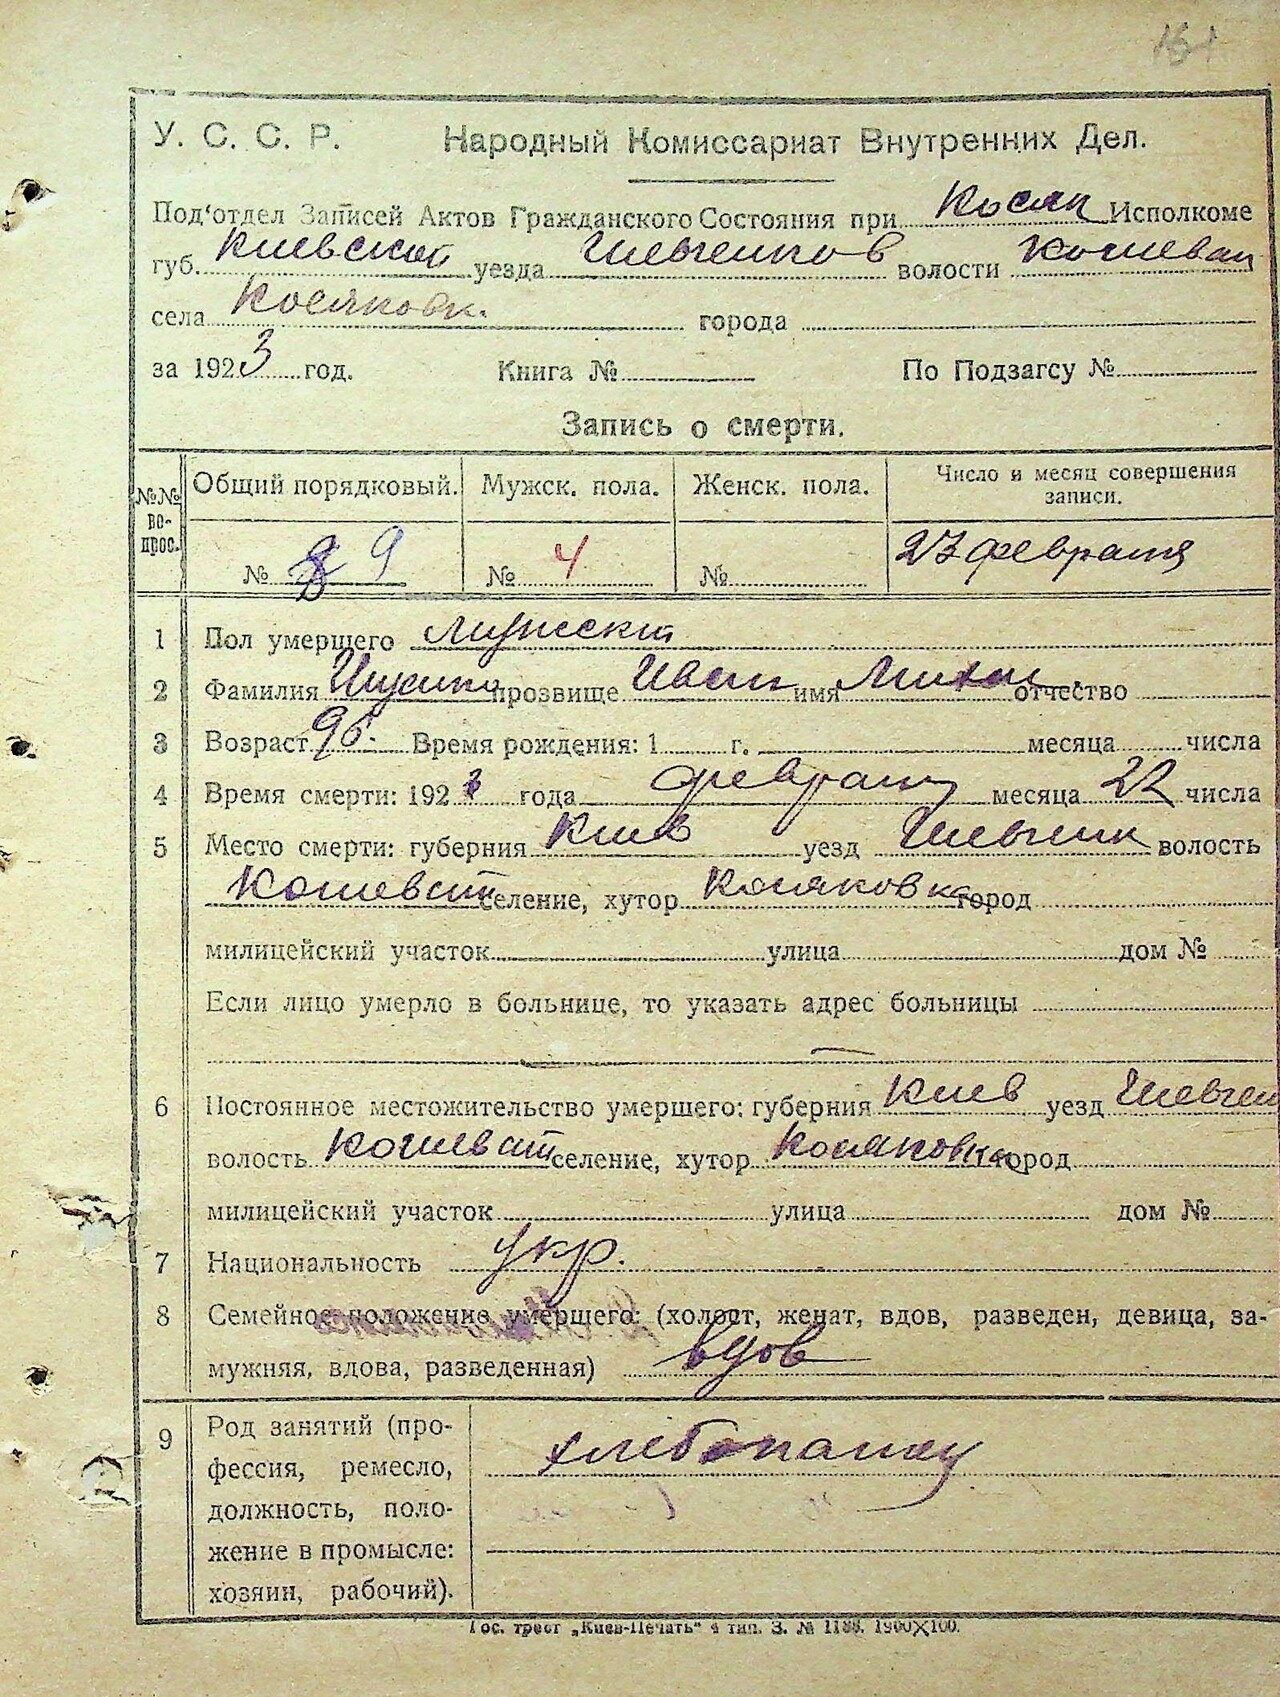 151
У. С. С. Р. Народный Комиссариат Внутренних Дел.
Под'отдел Записей Актов Гражданского Состояния при Косяк Исполкоме
губ. Киевской уезда Шевченков волости Кошеват
села Косяковк.
города
за 1923 год. Книга № По Подзагсу №
Запись о смерти.
№№ вопрос. Общий порядковый. Мужск. пола. Женск. пола. Число и месяц совершения записи.
№ 8 9 № 4 № 23 февраля
1 Пол умершего мужеский
2 Фамилия прозвище Иван имя Михаи отчество
3 Возраст 95. Время рождения: 1 г. месяца числа
4 Время смерти: 1923 года февраля месяца 22 числа
5 Место смерти: губерния Киев уезд Шевченк волость
Кошеват селение, хутор Косяковка город
милицейский участок улица дом №
Если лицо умерло в больнице, то указать адрес больницы
6 Постоянное местожительство умершего: губерния Киев уезд Шевчен
волость Кошеват селение, хутор Косяковка город
милицейский участок улица дом №
7 Национальность укр.
8 Семейное положение умершего: (холост, женат, вдов, разведен, девица, за-
мужняя, вдова, разведенная) вдов
9 Род занятий (про-
фессия, ремесло, хлебопашец
должность, поло-
жение в промысле:
хозяин, рабочий).
Гос. трест „Киев-Печать" 4 тип. З. № 1188. 1900×100.